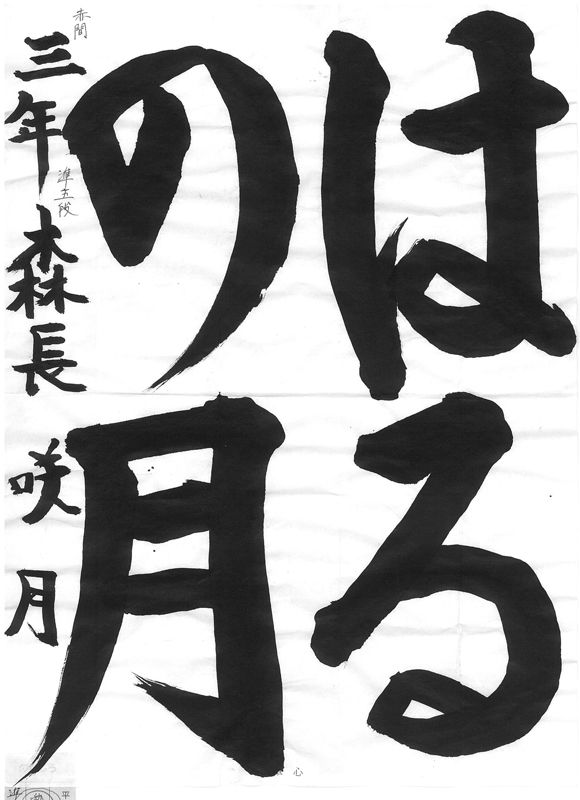 はる
の月
三年 森長 咲月
赤間
準五段
心
平